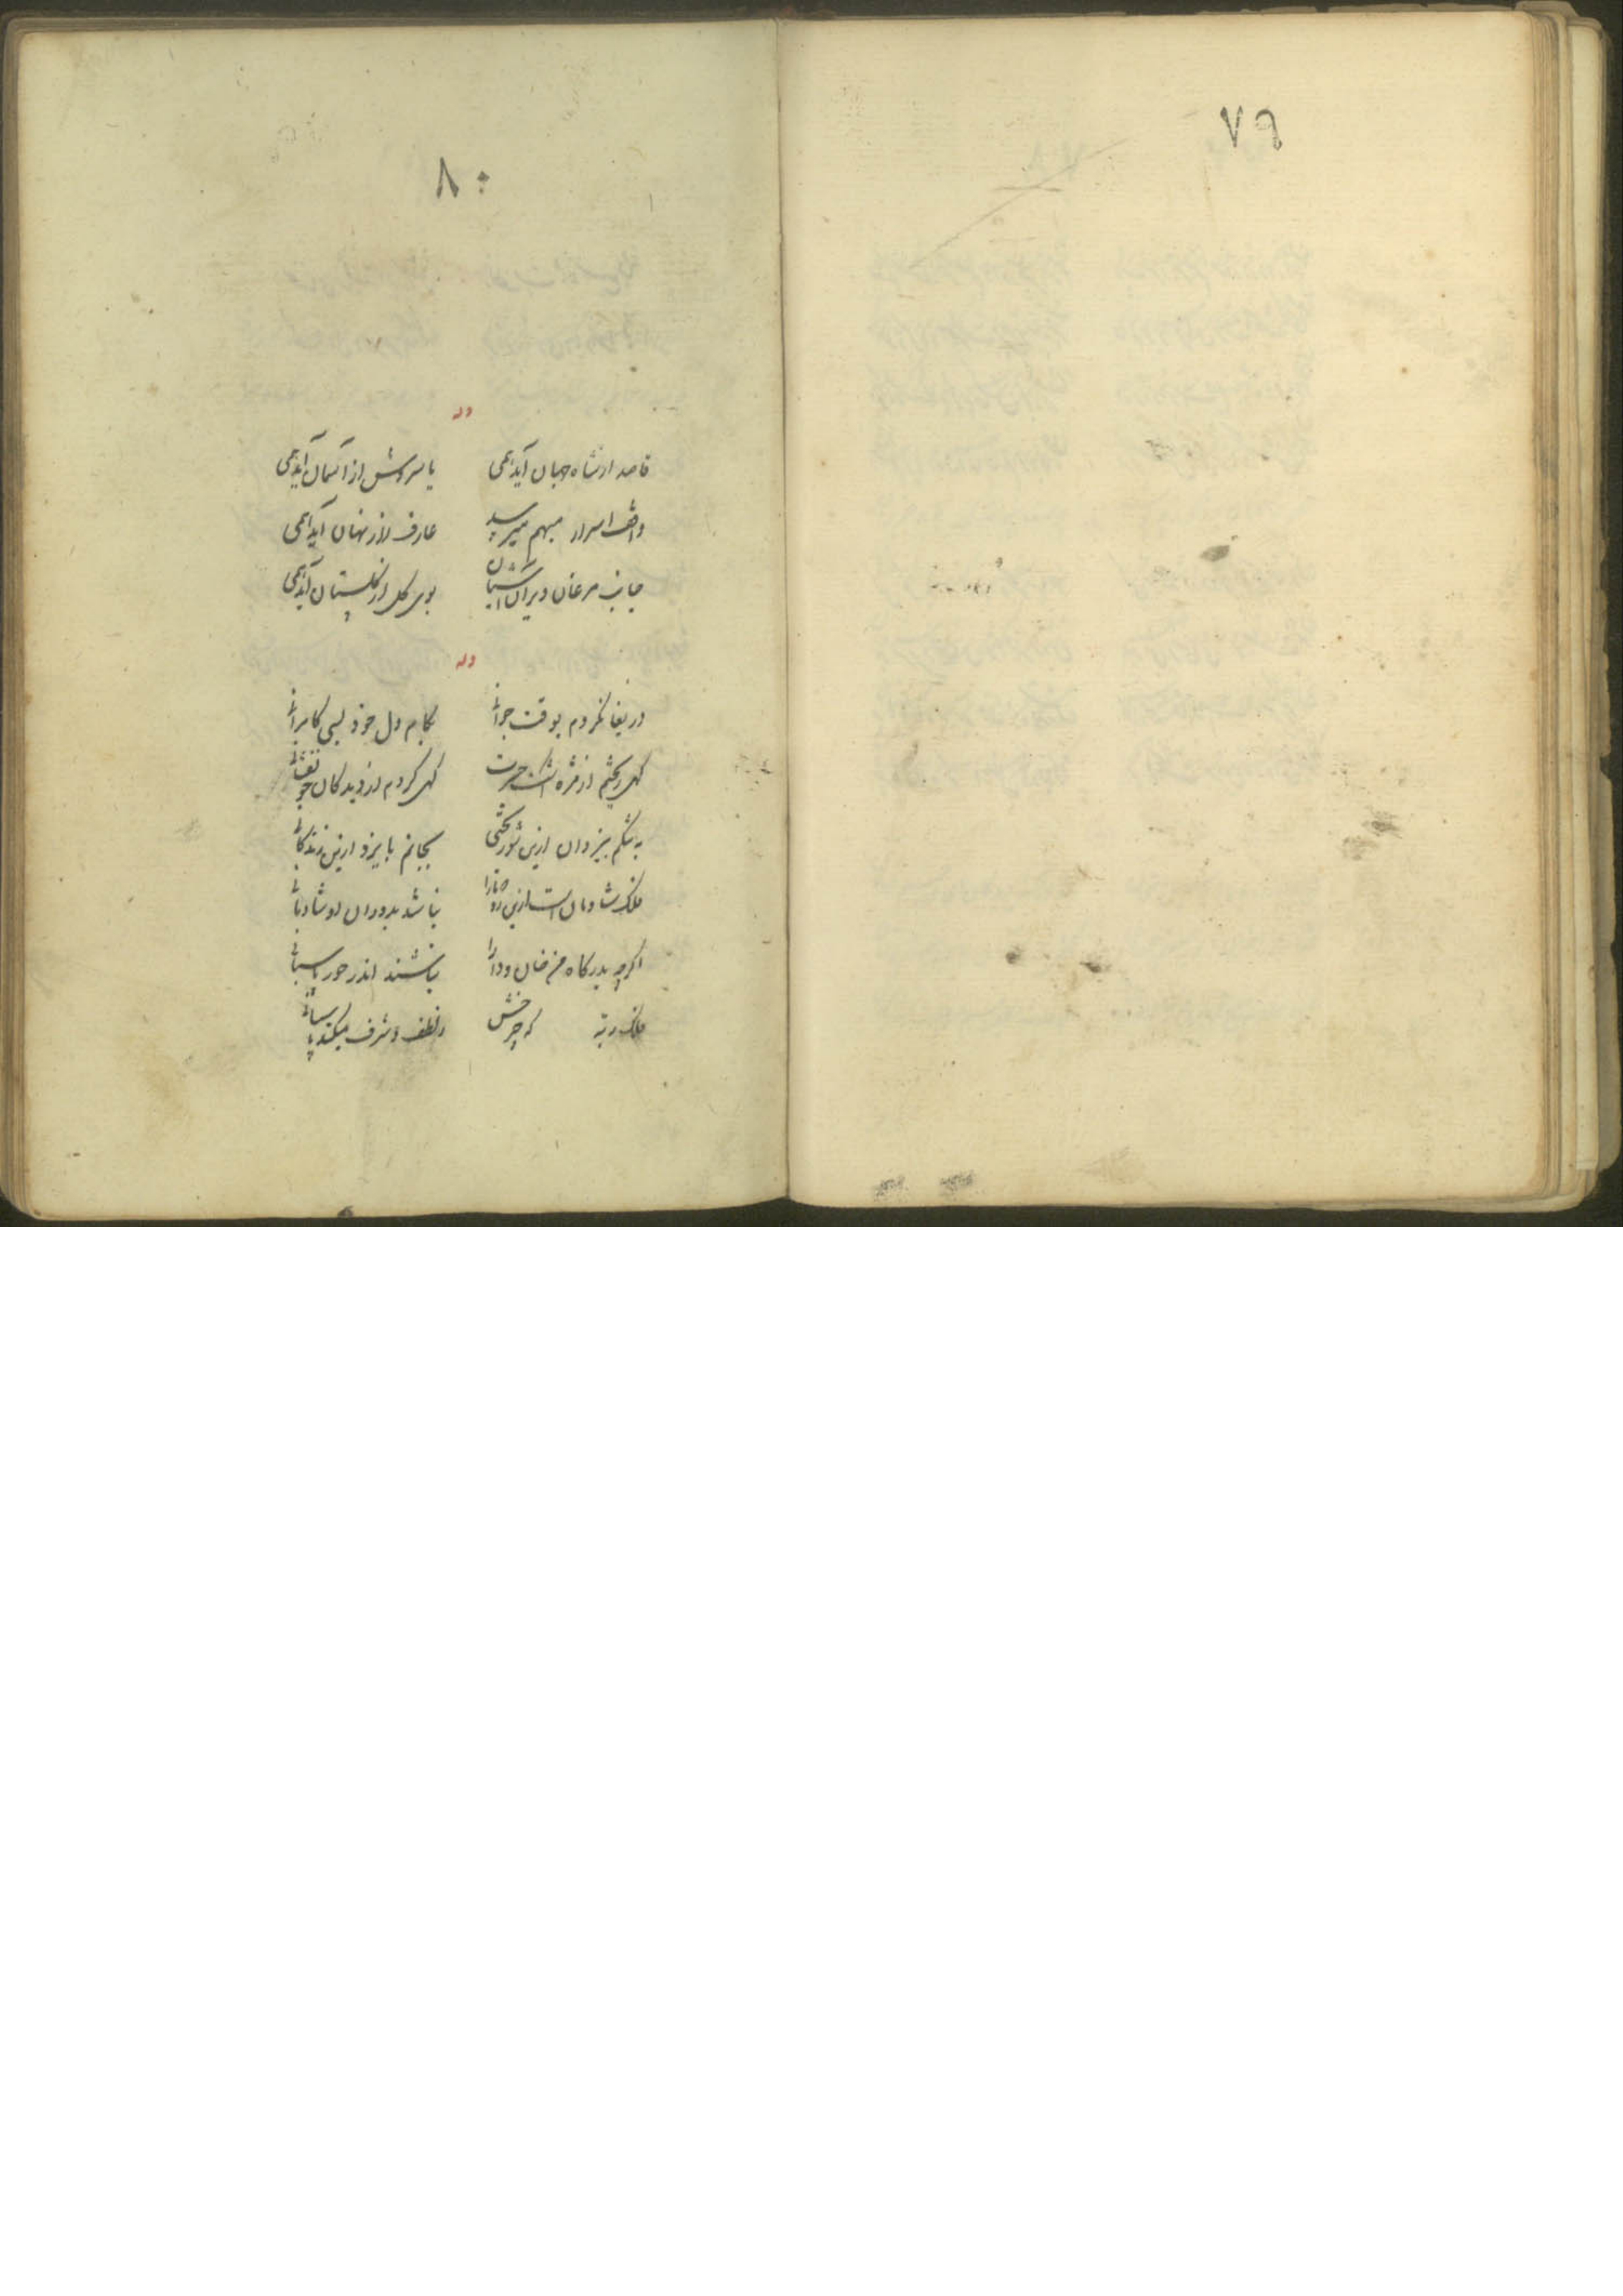 ٧٩
٨٠
وله
قاصد از شاه جهان آید همی یا سروش از آسمان آید همی
واقف اسرار مبهم میرسد عارف راز نهان آید همی
جانب مرغان ویران آشیان بوی گل از گلستان آید همی
وله
دریغا نکردم بوقت جوانی بکام دل خود بسی کامرانی
گهی ریختم از مژه اشک حسرت گهی کردم از دیدگان خونفشانی
به تنگم بیزدان ازین شوربختی بجانم بایزد ازین زندگانی
ملک شادمان است ازین رو نباشد بدوران او شادمانی
اگرچه بدرگاه خان و دارا نباشند اندر خور پاسبانی
ملک رتبه که چرخش ز لطف و شرف میکند پاسبانی